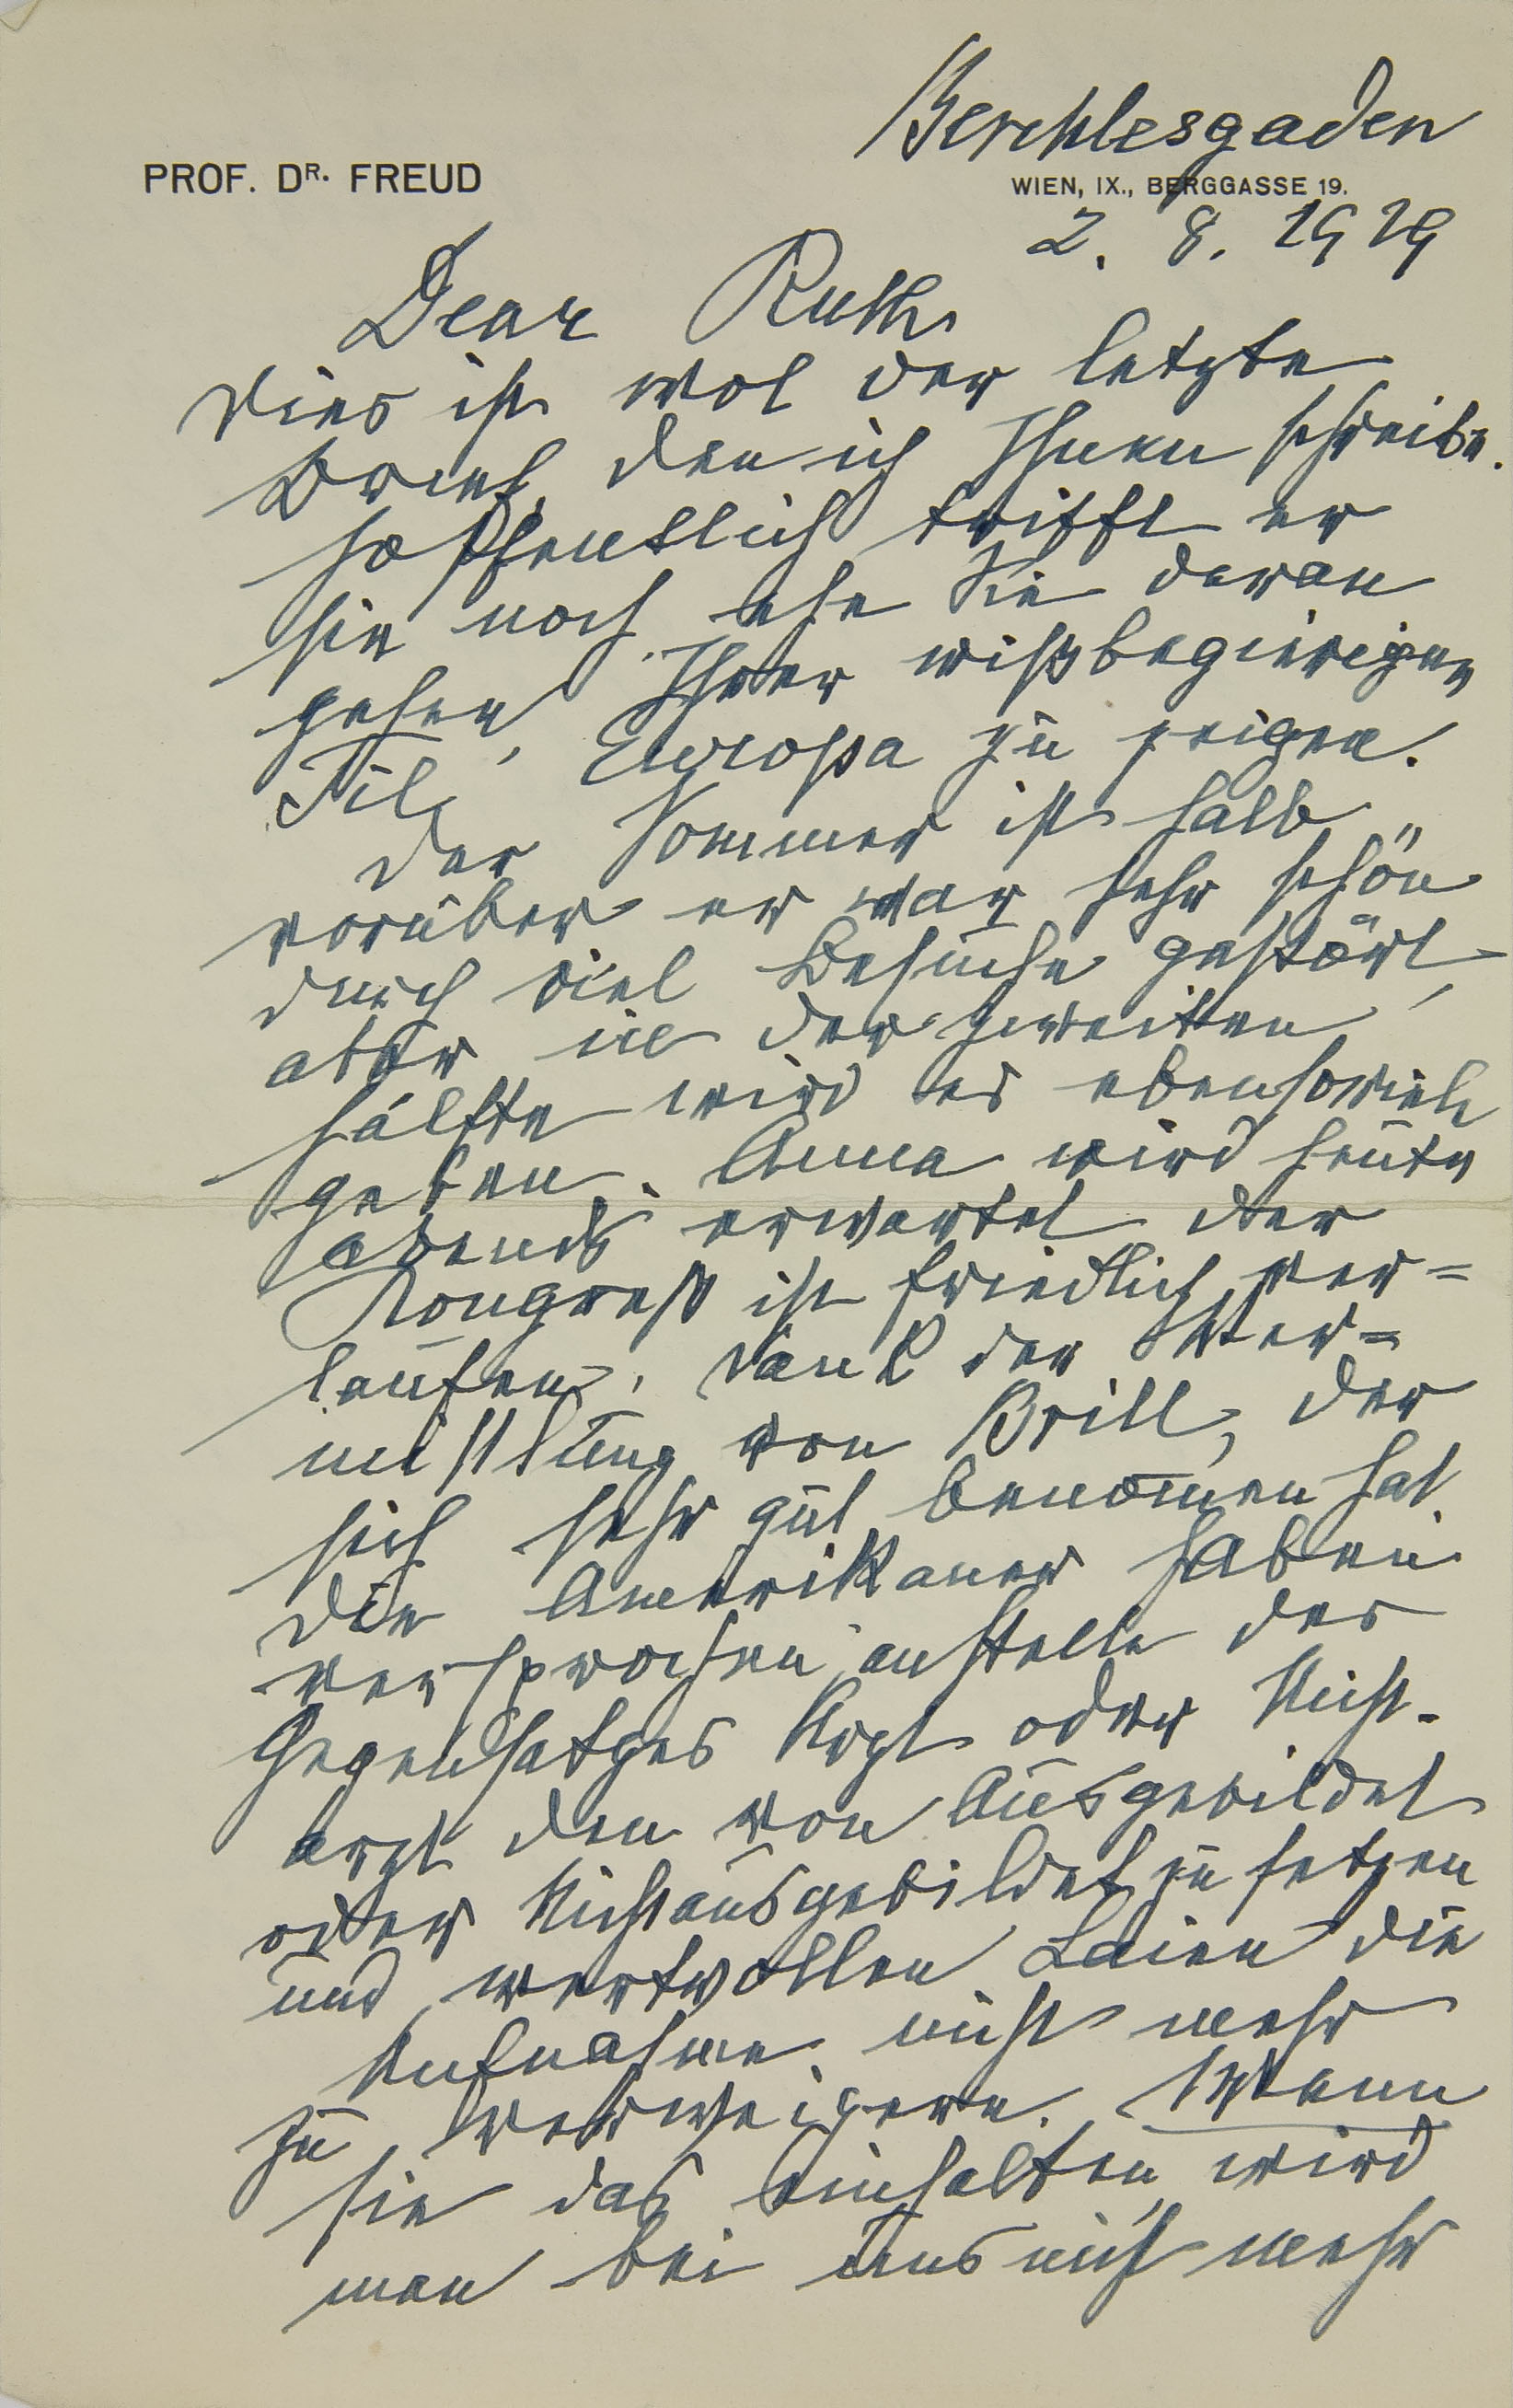 Berchtesgaden
PROF. DR. FREUD
WIEN, IX., BERGGASSE 19.
2. 8. 1929
Dear Ruth
Dies ist wol der letzte
Brief, den ich Ihnen schreibe.
Hoffentlich trifft er
Sie noch, ehe Sie daran
gehen, Ihrer wißbegierigen
Til, Europa zu zeigen.
Der Sommer ist halb
vorüber er war sehr schön
durch viel Besuche gestört,
aber in der zweiten
Hälfte wird es ebensoviele
geben. Anna wird heute
abends erwartet. Der
Kongreß ist friedlich ver=
laufen, Dank der Ver=
mittlung von Brill, der
sich sehr gut benom̅en hat.
Die Amerikaner haben
versprochen, anstelle des
Gegensatzes Arzt oder Nicht-
arzt den von Ausgebildet
oder Nichtausgebildet zu setzen
und wertvollen Laien die
Aufnahme nicht mehr
zu verweigern. Wenn
sie das einhalten, wird
man bei uns nicht mehr